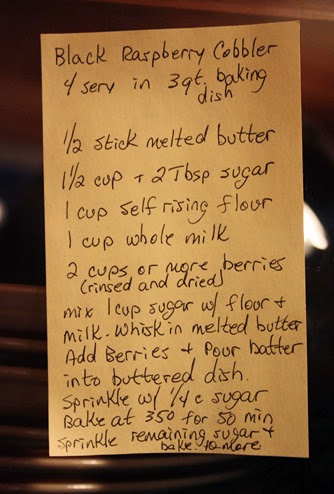 Black Raspberry Cobbler
4 serv in 3 qt. baking
dish
1/2 stick melted butter
1 1/2 cup + 2 Tbsp sugar
1 cup self rising flour
1 cup whole milk
2 cups or more berries
(rinsed and dried)
mix 1 cup sugar w/ flour +
milk. Whisk in melted butter
Add Berries + Pour batter
into buttered dish.
Sprinkle w/ 1/4 c sugar
Bake at 350 for 50 min
Sprinkle remaining sugar +
bake 10 more